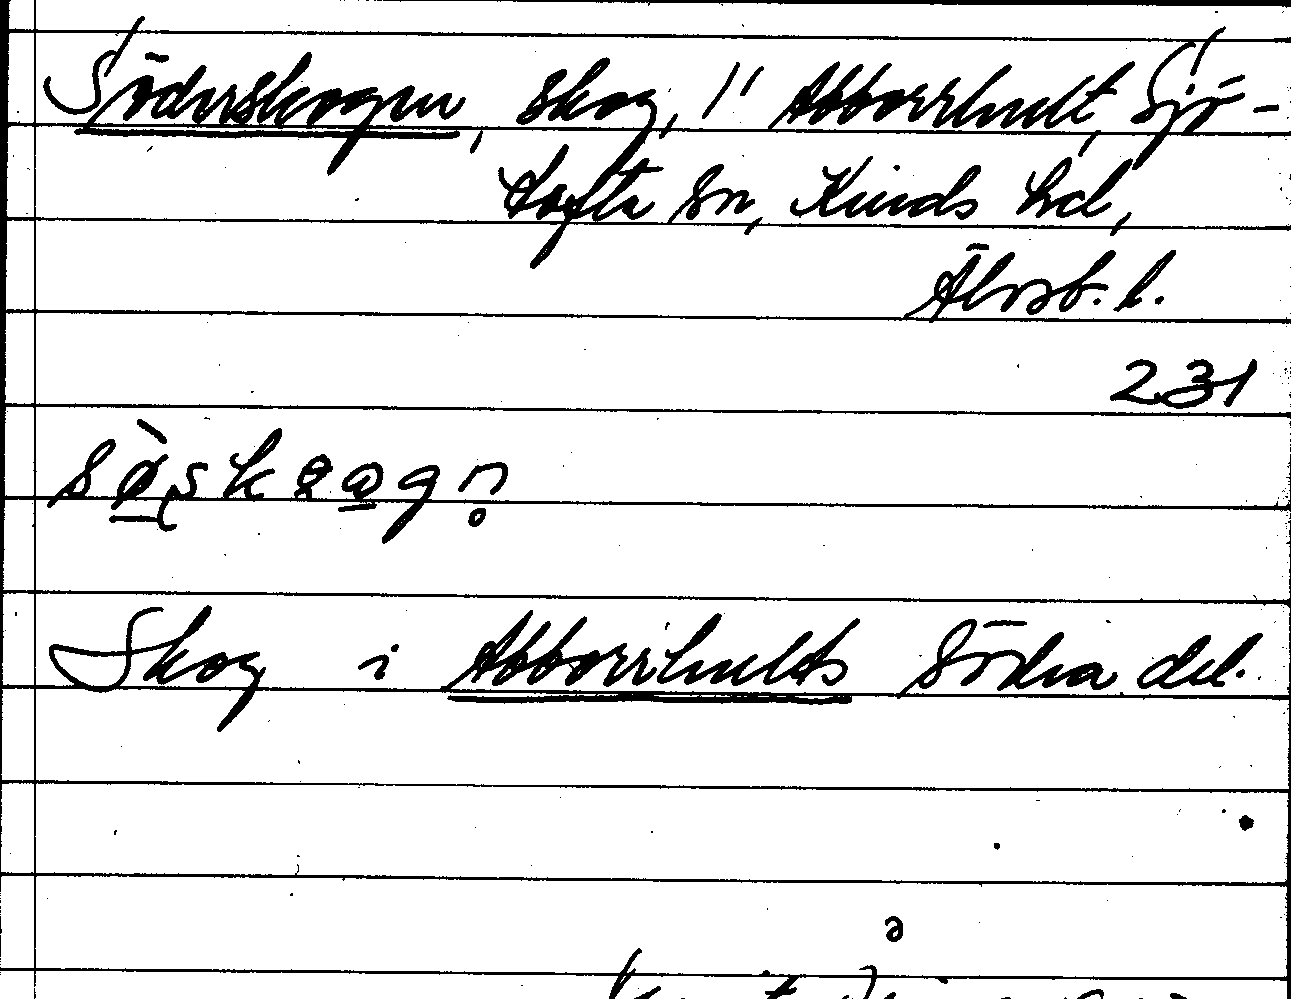 Söderskogen, skog, 1" Abborrhult, Sjö-
tofta sn, Kinds hd,
Älvsb. l.
231
Skog i Abborrhults södra del.